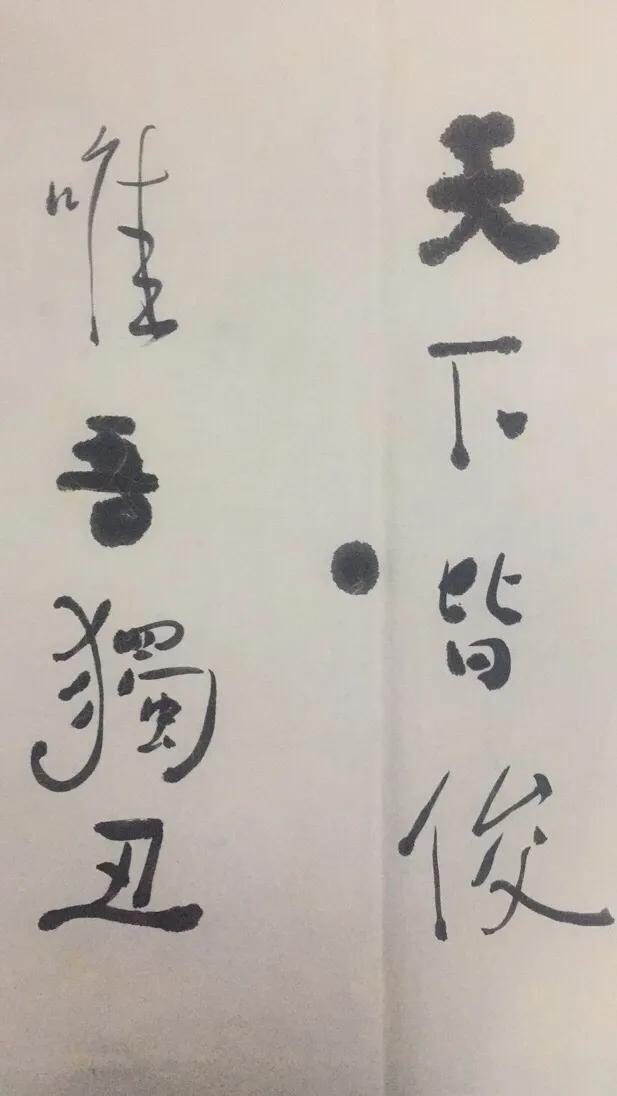 天下皆俊
唯吾獨丑